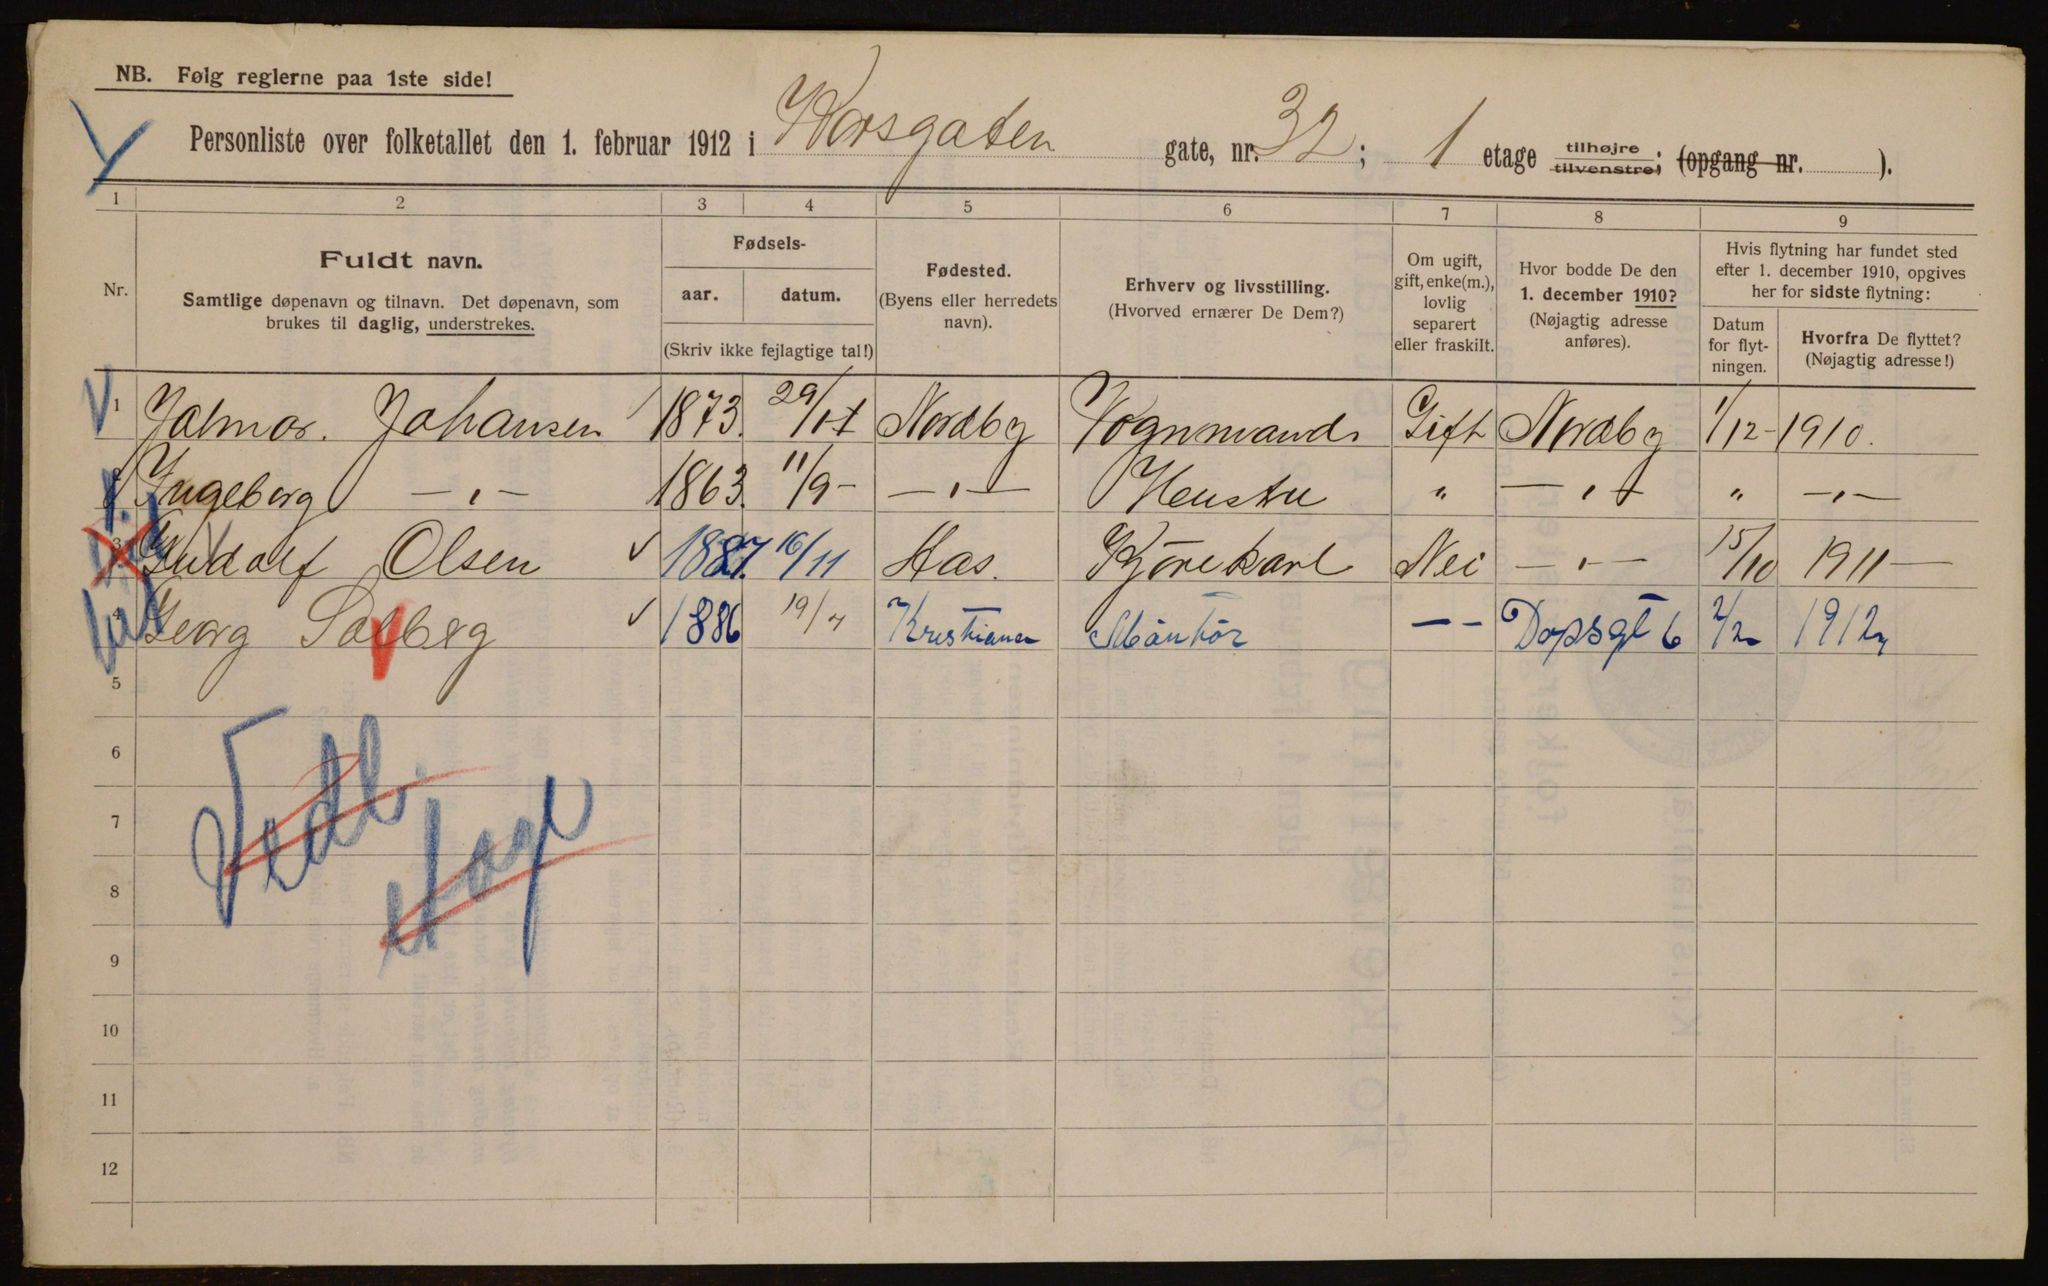 NB. Følg reglerne paa 1ste side!
Personliste over folketallet den 1. februar 1912 i Korsgaten gate, nr. 32; 1 etage tilhøjre tilvenstre; (opgang nr. ).
1 2 3 4 5 6 7 8 9
Nr.
Fuldt navn.
Samtlige døpenavn og tilnavn. Det døpenavn, som
brukes til daglig, understrekes.
Fødsels-
aar. datum.
(Skriv ikke fejlagtige tal!)
Fødested.
(Byens eller herredets
navn).
Erhverv og livsstilling.
(Hvorved ernærer De Dem?)
Om ugift,
gift, enke(m.),
lovlig
separert
eller fraskilt.
Hvor bodde De den
1. december 1910?
(Nøjagtig adresse
anføres).
Hvis flytning har fundet sted
efter 1. december 1910, opgives
her for sidste flytning:
Datum
for flyt-
ningen.
Hvorfra De flyttet?
(Nøjagtig adresse!)
1 Jalmar. Johansen 1873. 29/ Nordby Vognmand Gift Nordby 1/12 - 1910.
Ingeborg —„— 1863. 11/9 - —„— Hustru „ —„— „ —„—
3 Olsen 1887. 16/11 Aas. Kjörekarl Nei —„— 15/10 1911 —
4 Georg Solberg 1886 19/4 Kristiania Montör — — Dopsgt 6 2/2 1912
5
6
7
8
9
10
11
12
Vedl.
Hage